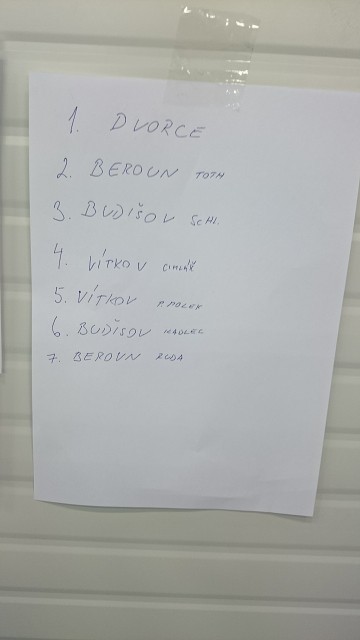 1. DVORCE
2. BEROUN TOTH
3. BUDIŠOV SCHL.
4. VÍTKOV
5. VÍTKOV
6. BUDIŠOV KADLEC
7. BEROUN RUDA